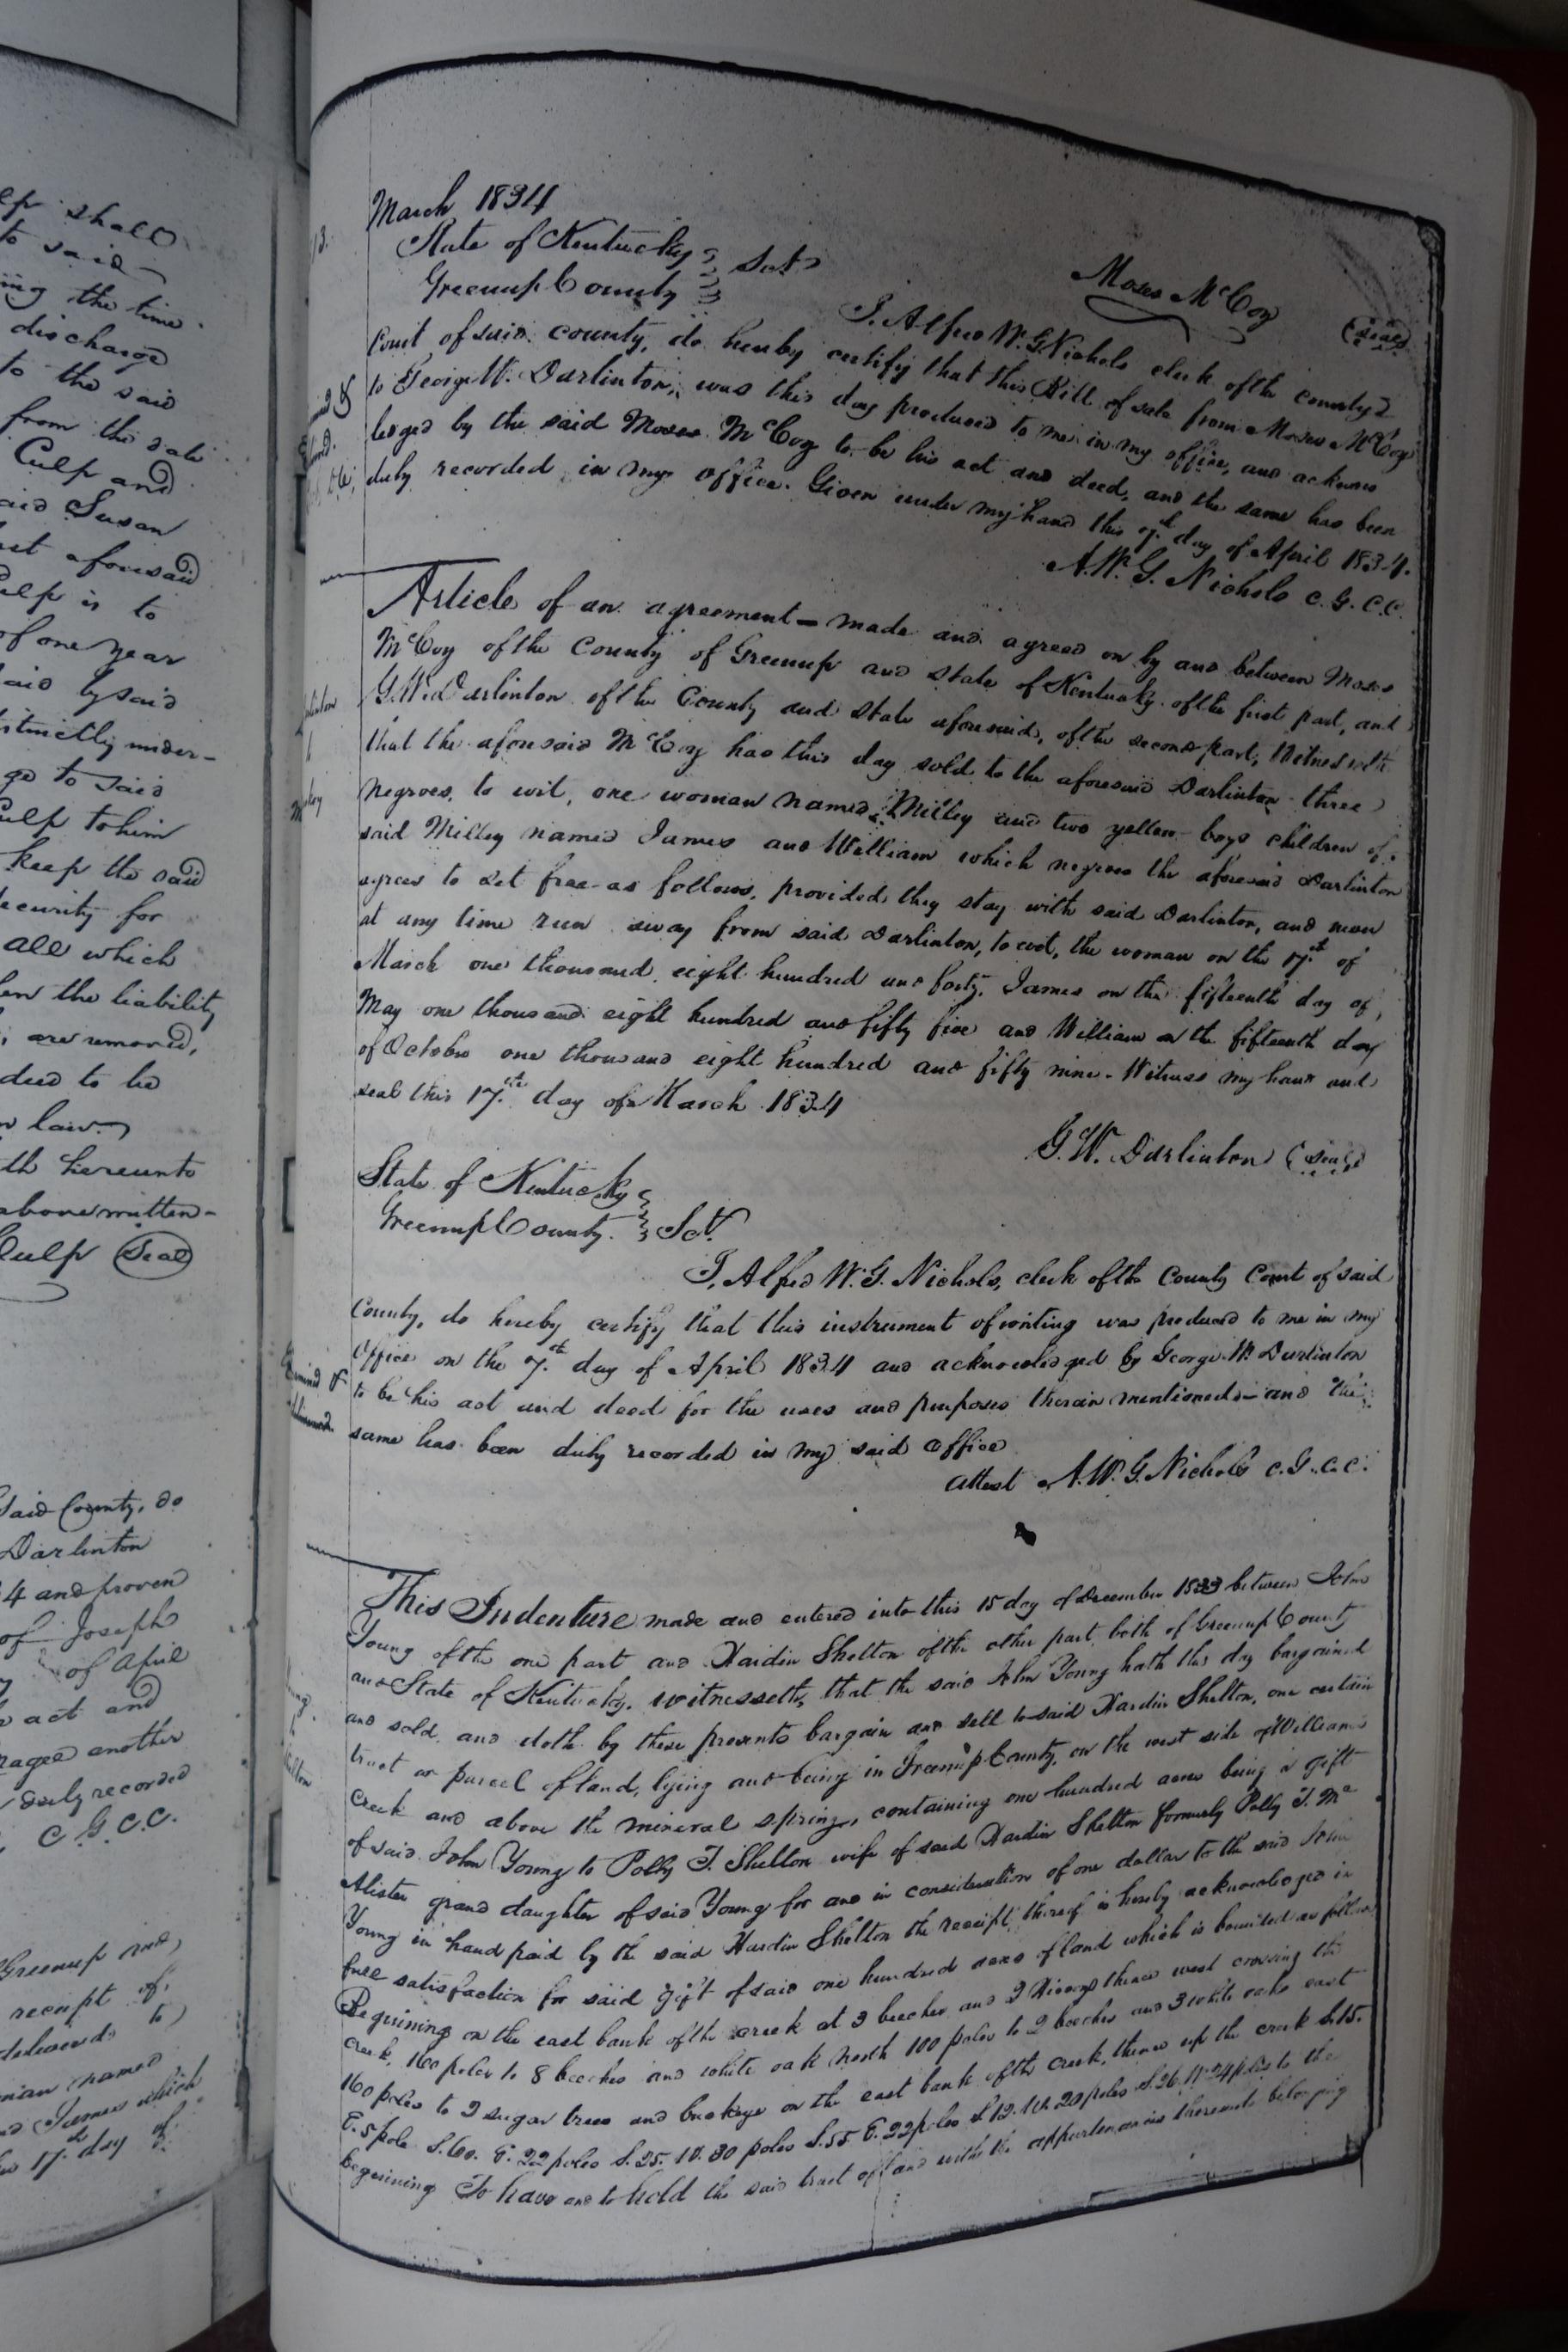 lp shall
to said
ing the time
discharge
to the said
from the date
Culp and
aid Susan
st aforesaid
Culp is to
of one year
aid by said
istinctly under-
ge to said
Culp to him
keep the said
security for
all which
the liability
are removed,
deed to be
law.
th hereunto
above written-
Culp (Seal)
Said County, do
Darlinton
4 and proven
of Joseph
of April
act and
another
duly recorded
C.G.C.C.
Greenup and
receipt of
to
man named
and James which
17th day of
March 1834
Moses McCoy (Seal)
State of Kentucky
Greenup County } Sct
I, Alfred W. G. Nichols clerk of the county
Court of said county, do hereby certify that this Bill of sale from Moses McCoy
to George W. Darlinton, was this day produced to me in my office, and acknow
ledged by the said Moses McCoy to be his act and deed, and the same has been
duly recorded in my office. Given under my hand this 7th day of April 1834.
A. W. G. Nichols C.G.C.C.
Article of an agreement - made and agreed on by and between Moses
McCoy of the County of Greenup and state of Kentucky of the first part, and
G. W. Darlinton of the County and state aforesaid, of the second part, Witnesseth
that the aforesaid McCoy has this day sold to the aforesaid Darlinton three
negroes, to wit, one woman named Milley and two yellow boys children of
said Milley named James and William which negroes the aforesaid Darlinton
agrees to set free as follows, provided they stay with said Darlinton, and never
at any time run away from said Darlinton, to wit, the woman on the 17th of
March one thousand eight hundred and forty, James on the fifteenth day of
May one thousand eight hundred and fifty five and William on the fifteenth day
of October one thousand eight hundred and fifty nine. Witness my hand and
seal this 17th day of March 1834
G. W. Darlinton (Seal)
State of Kentucky
Greenup County } Sct.
I, Alfred W. G. Nichols, clerk of the County Court of said
County, do hereby certify that this instrument of writing was produced to me in my
Office on the 7th day of April 1834 and acknowledged by George W. Darlinton
to be his act and deed for the uses and purposes therein mentioned - and the
same has been duly recorded in my said office
Attest A. W. G. Nichols C.G.C.C.
This Indenture made and entered into this 15 day of December 1833 between John
Young of the one part and Hardin Shelton of the other part both of Greenup County
and State of Kentucky. witnesseth, that the said John Young hath this day bargained
and sold, and doth by these presents bargain and sell to said Hardin Shelton, one certain
tract or parcel of land, lying and being in Greenup County, on the west side of Williams
Creek and above the mineral spring, containing one hundred acres being a gift
of said John Young to Polly T. Shelton wife of said Hardin Shelton formerly Polly T. Mc
Alister grand daughter of said Young for and in consideration of one dollar to the said John
Young in hand paid by the said Hardin Shelton the receipt thereof is hereby acknowledged in
full satisfaction for said gift of said one hundred acres of land which is bounded as follows
Begining on the east bank of the creek at 3 beeches and 2 thence west crossing the
creek, 160 poles to 8 beeches and white oak north 100 poles to 2 beeches and 3 white oaks east
160 poles to 2 sugar trees and buckeye on the east bank of the creek, thence up the creek S. 15.
E. 5 pole S. 60. E. 22 poles S. 25. W. 30 poles S. 55. E. 22 poles S 12. W. 20 poles S. 26. W. 24 poles to the
begining To have and to hold the said tract of land with the appurtenances thereunto belonging